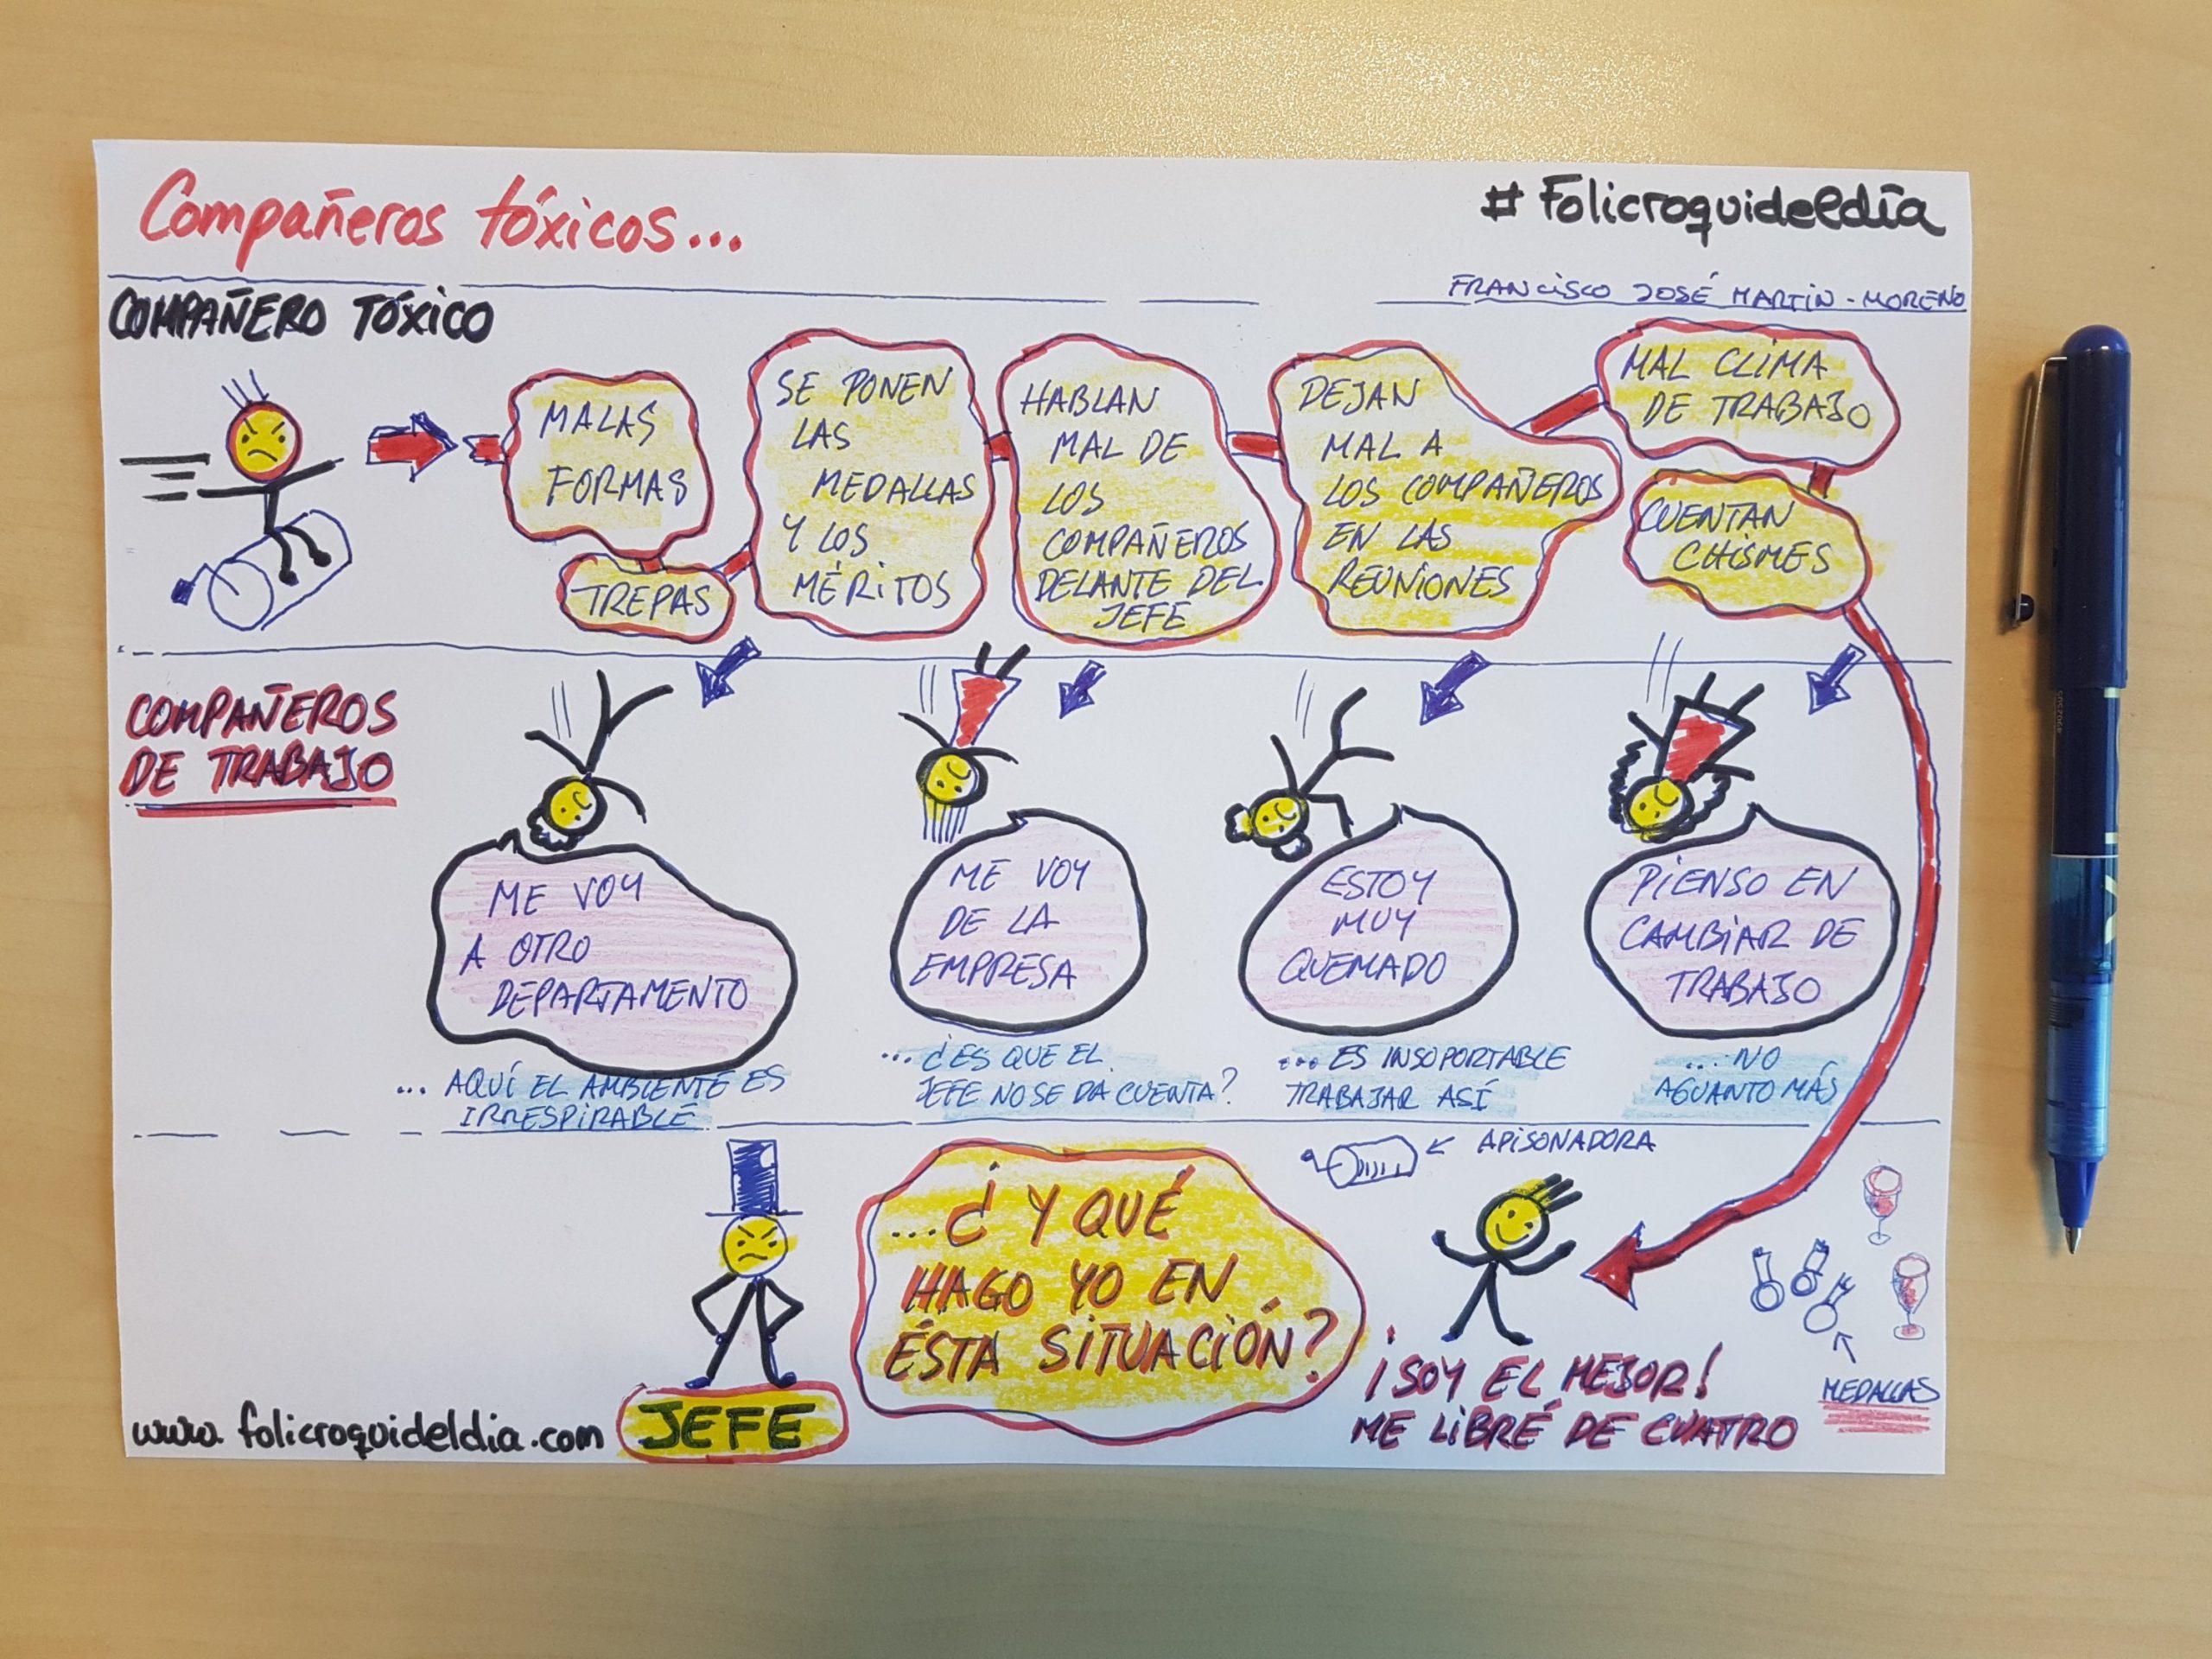 Compañeros tóxicos...
# Folicroquideldía
FRANCISCO JOSÉ MARTIN-MORENO
COMPAÑERO TÓXICO
MALAS
FORMAS
TREPAS
SE PONEN
LAS
MEDALLAS
Y LOS
MÉRITOS
HABLAN
MAL DE
LOS
COMPAÑEROS
DELANTE DEL
JEFE
DEJAN
MAL A
LOS COMPAÑEROS
EN LAS
REUNIONES
MAL CLIMA
DE TRABAJO
CUENTAN
CHISMES
COMPAÑEROS
DE TRABAJO
ME VOY
A OTRO
DEPARTAMENTO
... AQUÍ EL AMBIENTE ES
IRRESPIRABLE
ME VOY
DE LA
EMPRESA
... ¿ES QUE EL
JEFE NO SE DA CUENTA?
ESTOY
MUY
QUEMADO
... ES INSOPORTABLE
TRABAJAR ASÍ
PIENSO EN
CAMBIAR DE
TRABAJO
... NO
AGUANTO MÁS
JEFE
...¿Y QUÉ
HAGO YO EN
ÉSTA SITUACIÓN?
APISONADORA
¡SOY EL MEJOR!
ME LIBRÉ DE CUATRO
MEDALLAS
www.folicroquideldia.com